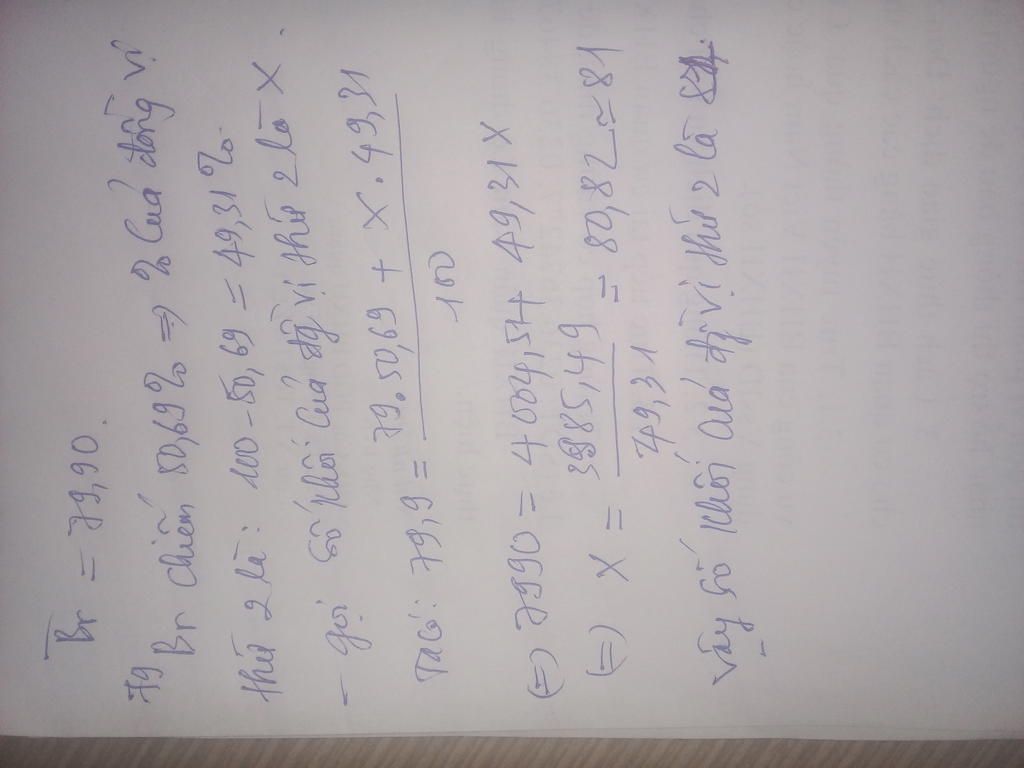 Br = 79,90.
79 Br chiếm 50,69% => % của đồng vị
thứ 2 là: 100 - 50,69 = 49,31%
- gọi số khối của đg vị thứ 2 là X.
Ta có: 79,9 = 79.50,69 + X.49,31
100
(=) 7990 = 4004,51 + 49,31X
(=) X = 3985,49 = 80,82 ≃ 81
49,31
Vậy số khối của đg vị thứ 2 là 81.